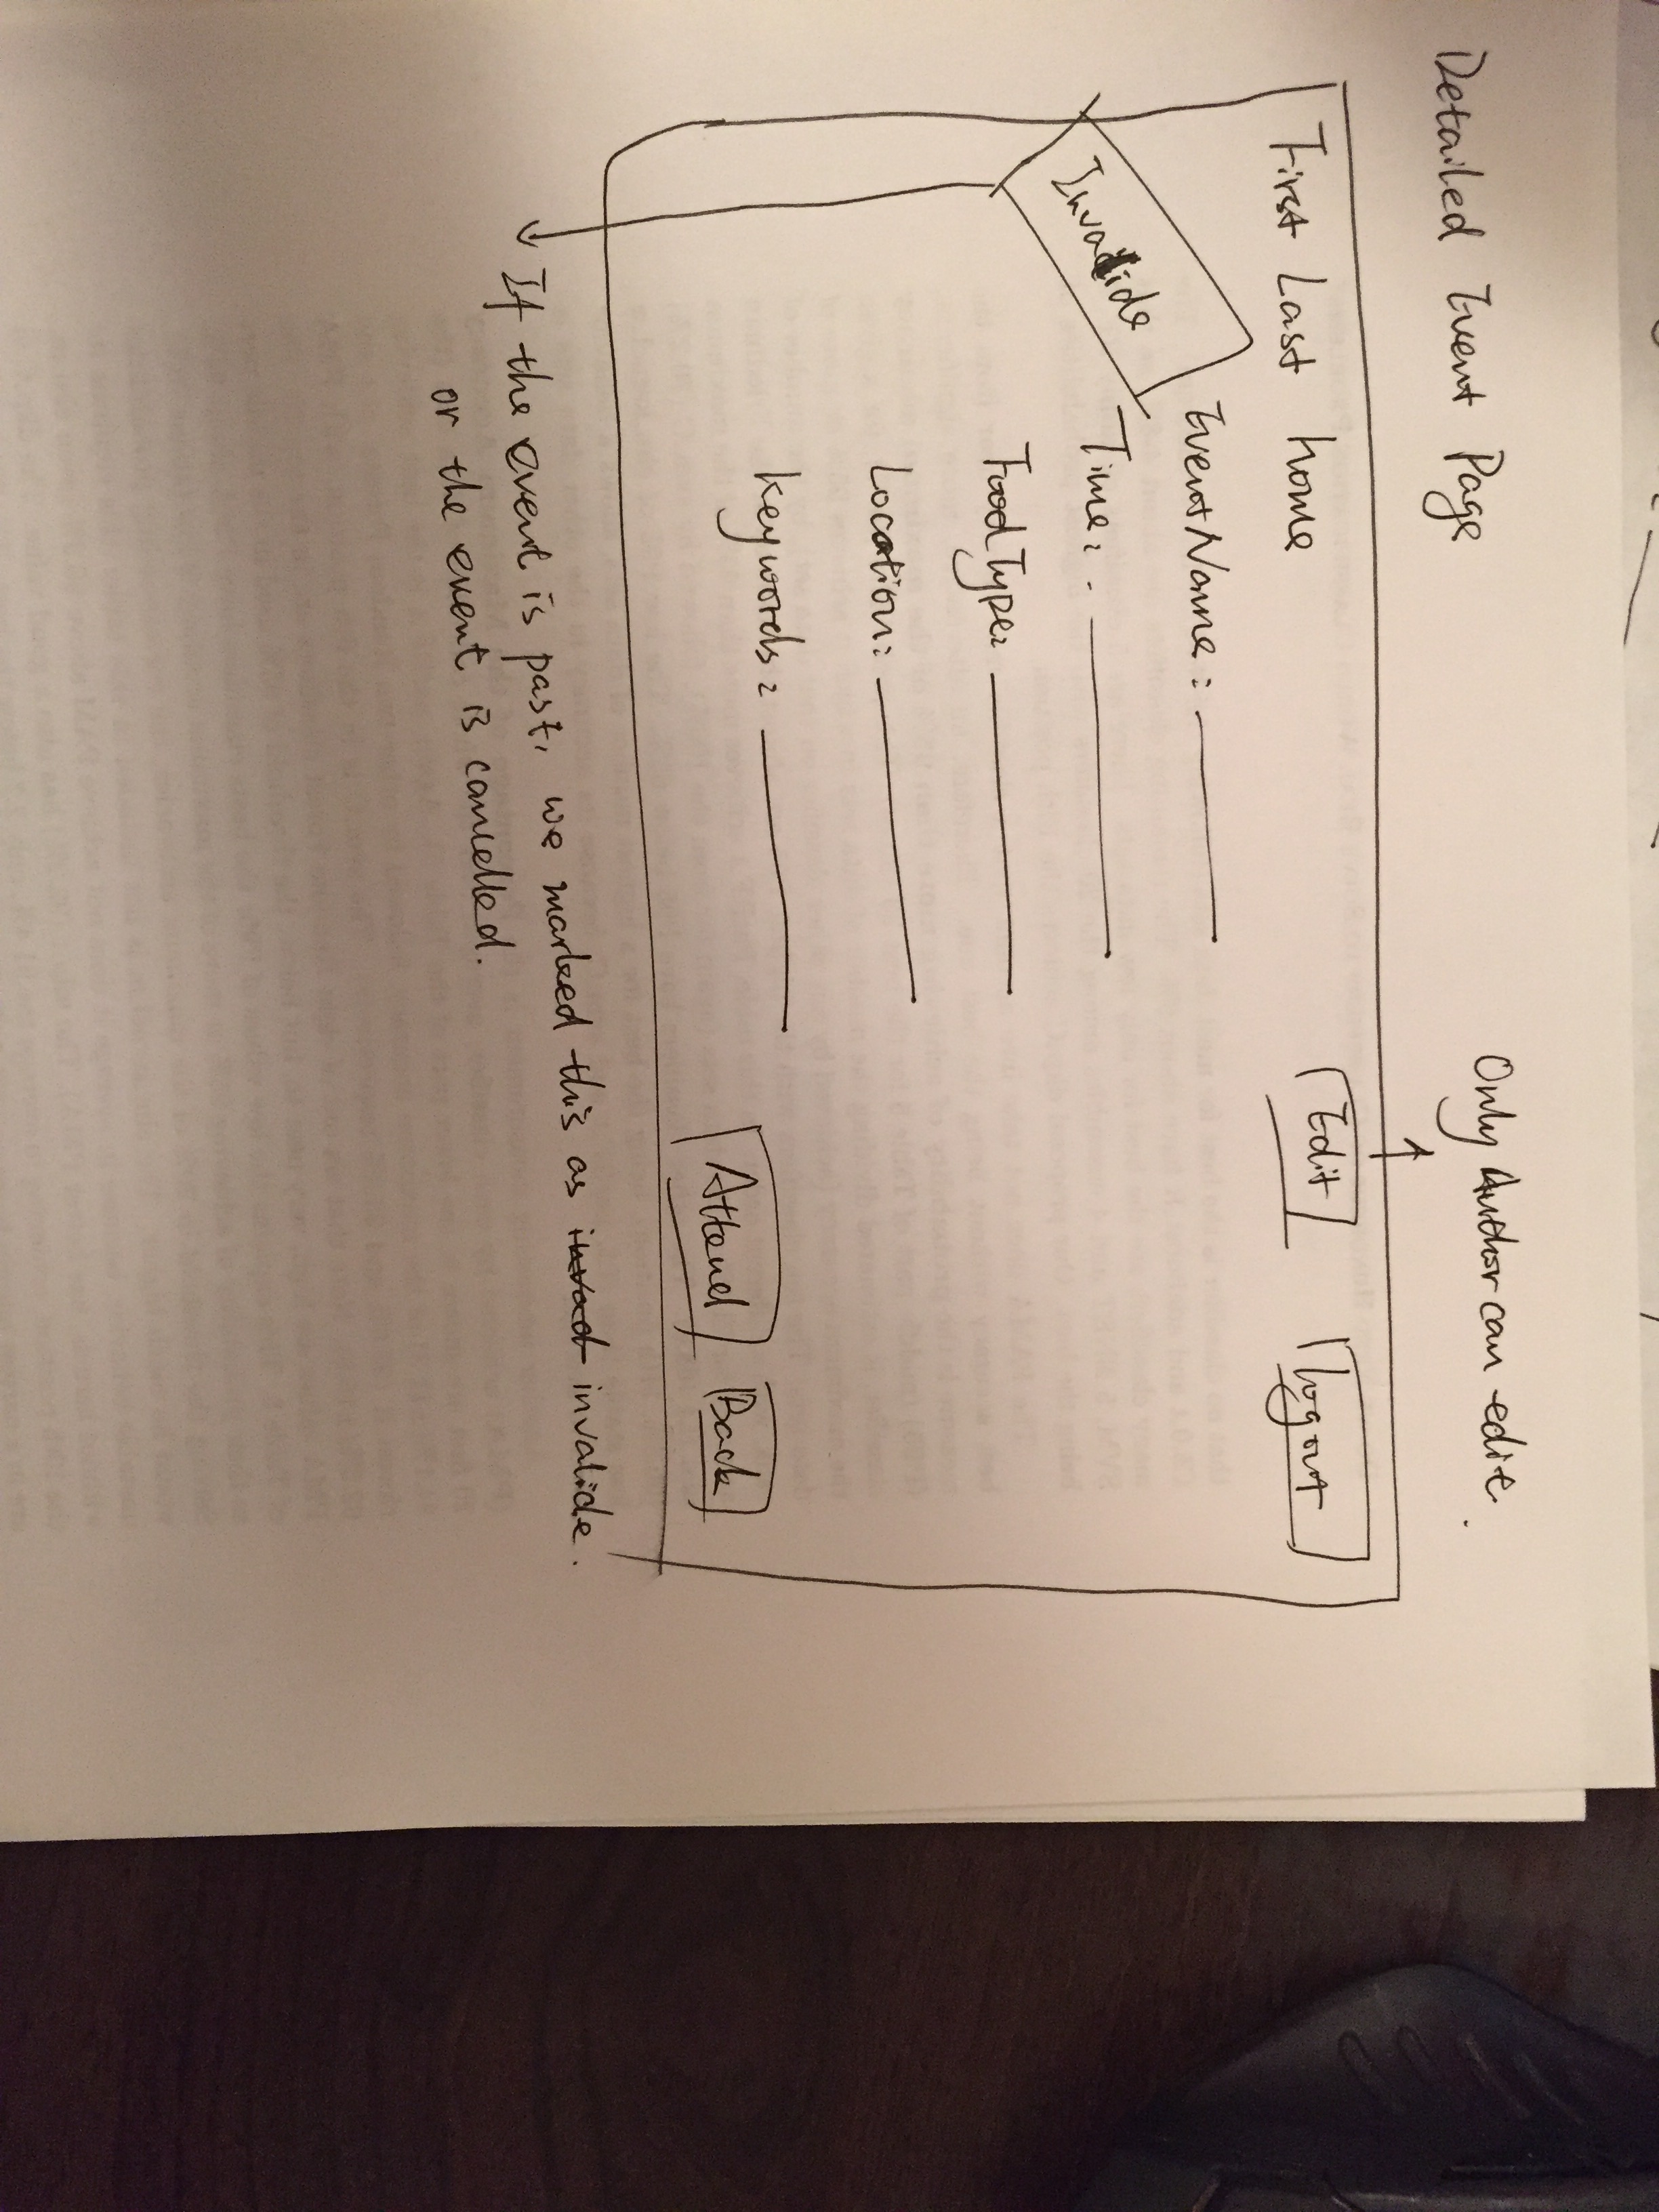 Detailed Event Page
Only Author can edit.
First Last home
Edit
Logout
Invalide
EventName:
Time:
FoodType:
Location:
keywords:
Attend
Back
If the event is past, we marked this as invalide.
or the event is cancelled.